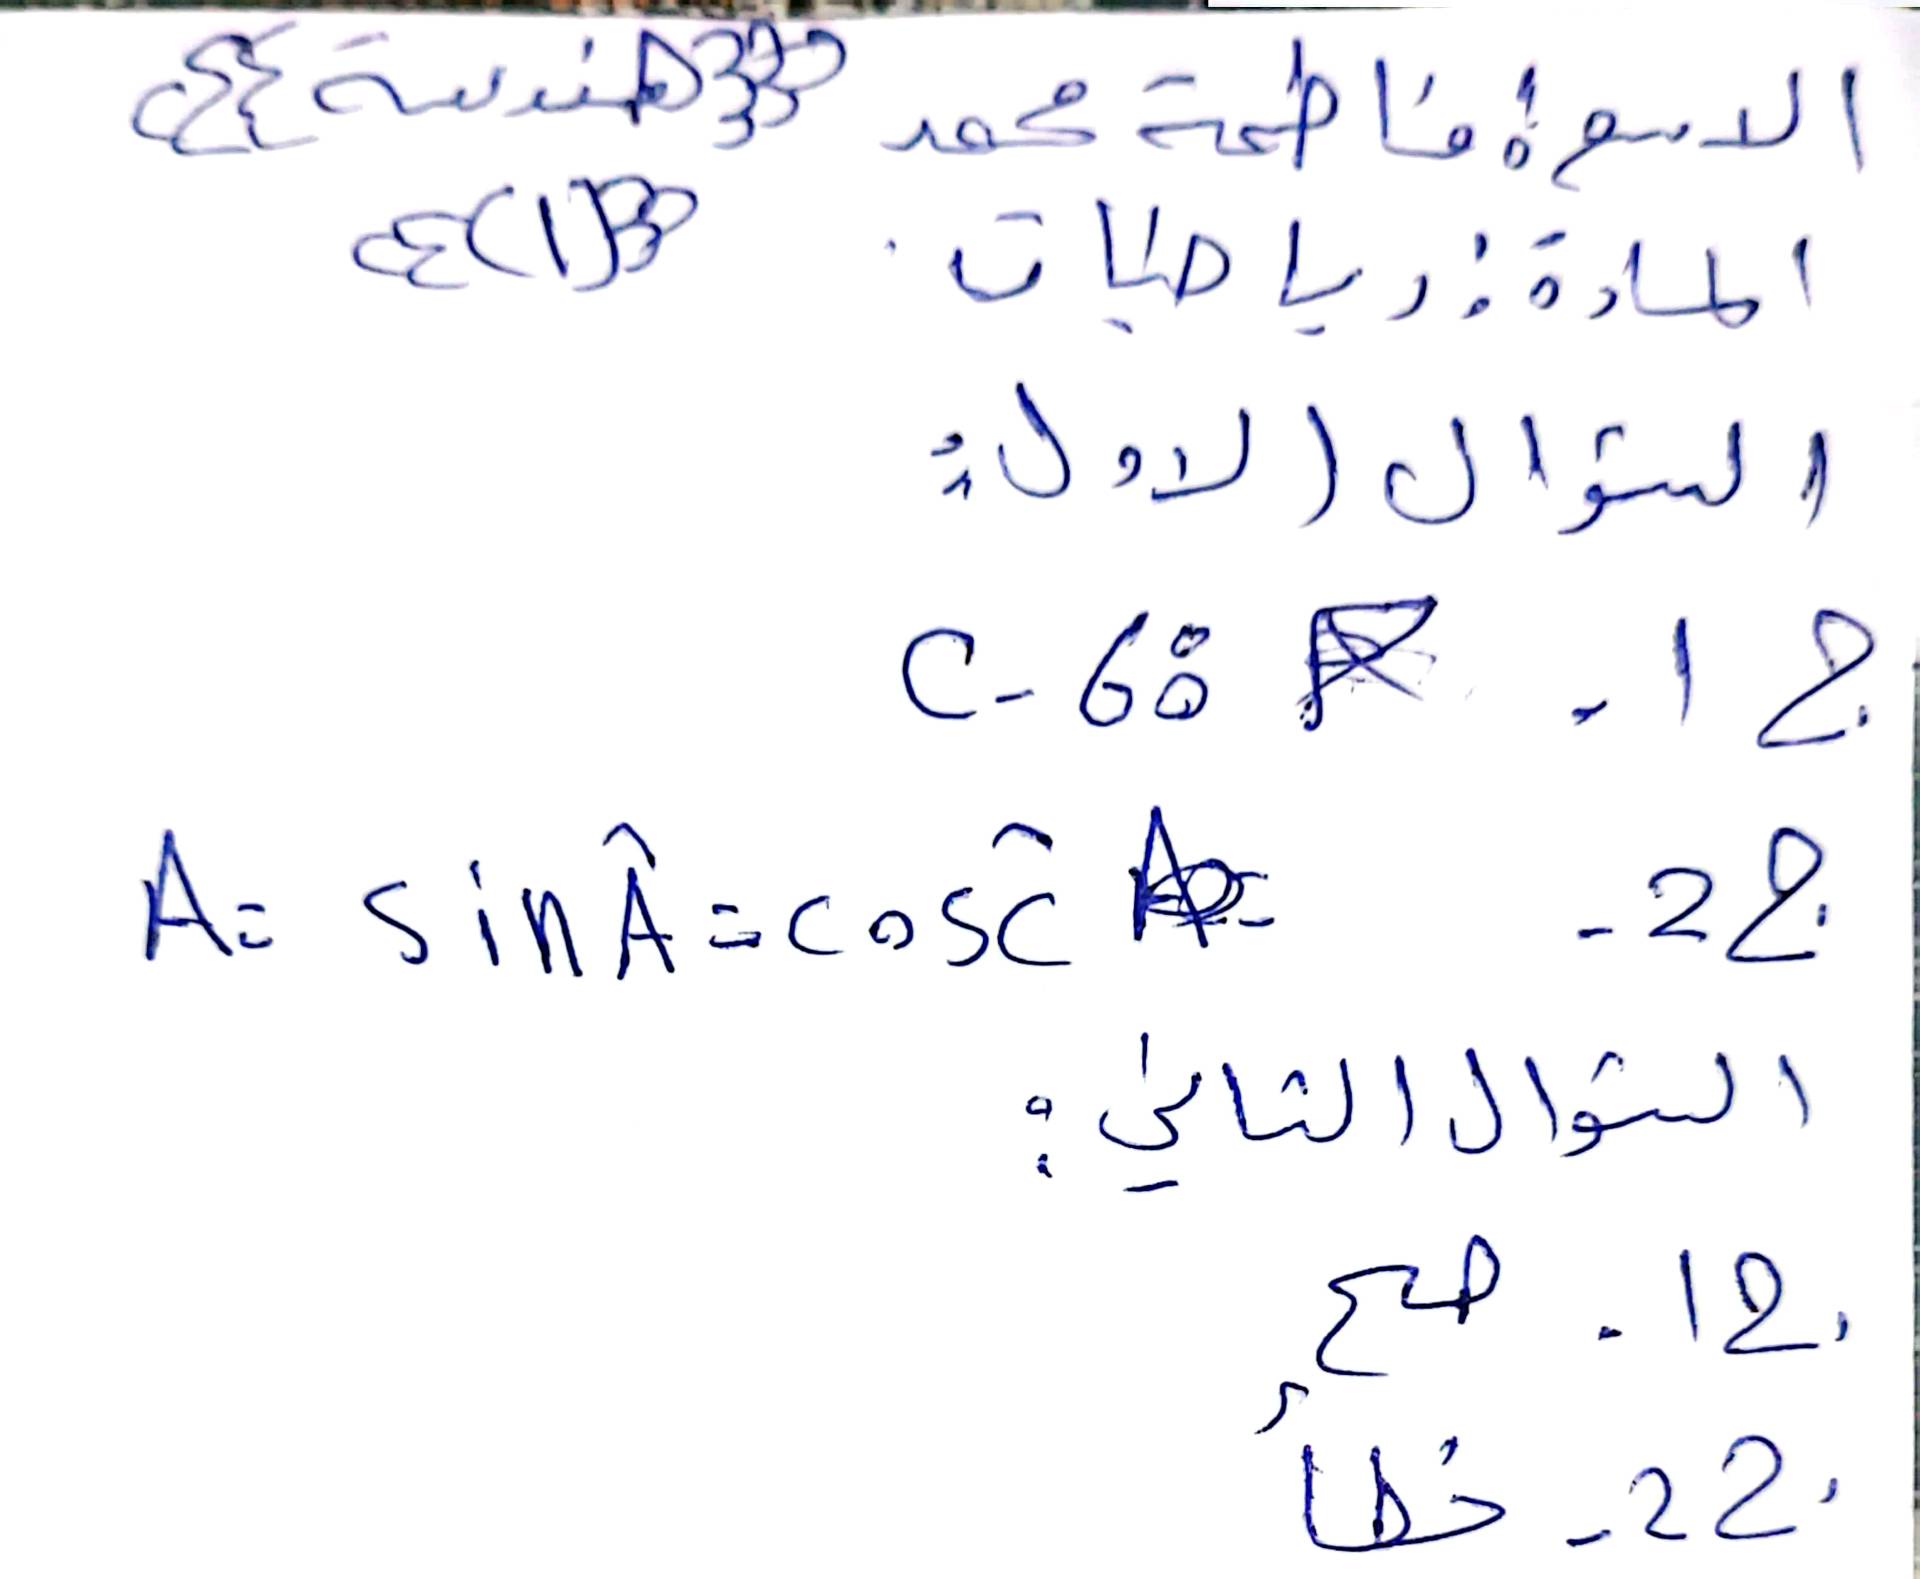 الاسم: فاطمة محمد {{{هندسة}}}
المادة: رياضيات. {{(1)}}
السؤال الاول:
1 - C - 60°
2 - A = sin Â = cos ĉ
السؤال الثاني:
1 - صح
2 - خطأ